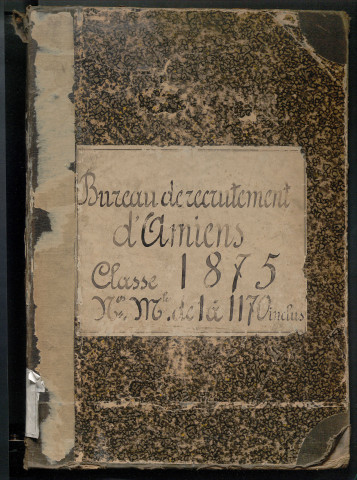 Bureau de recrutement
d'Amiens
Classe 1875
Nos Mles de 1 à 1170 inclus